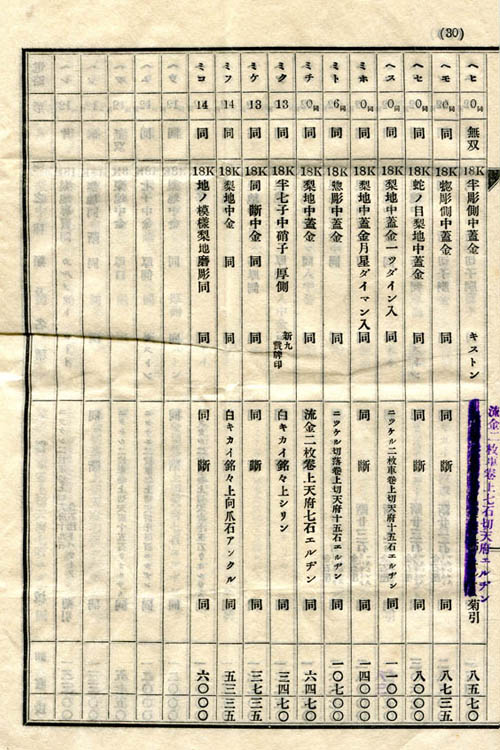 (30)
ヘヒ 0同 無双 18K 半彫側中蓋金 キストン 菊引 八五七〇
流金二枚車巻上七石切天府エルヂン
ヘモ 0同 同 18K 惣彫側中蓋金 同 同 斷 同 八七三五〇
ヘセ 0同 同 18K 蛇ノ目梨地中蓋金 同 同 斷 同 八〇〇〇
ヘス 0同 同 18K 梨地中蓋金一ツダイン入 同 ニツケル二枚車巻上切天府十五石エルヂン 同 一一〇〇〇
ミホ 0同 同 18K 梨地中蓋金月星ダイマン入 同 同 斷 同 一四〇〇〇
ミト 6同 同 18K 惣彫中蓋金 同 ニツケル切落巻上切天府十五石エルヂン 同 一〇七〇〇
ミチ 0同 同 18K 梨地中蓋金 同 流金二枚巻上天府七石エルヂン 同 六四七〇
ミク 13 同 18K 半七子中硝子厚側 新九賞牌印 白キカイ銘々上シリン 同 三四七〇
ミケ 13 同 18K 同斷中金 同 同 斷 同 三七三五
ミフ 14 同 18K 梨地中金 同 同 白キカイ銘々上向爪石アンクル 同 五三三五
ミコ 14 同 18K 地ノ模樣梨地磨彫同 同 同 斷 同 六〇〇〇